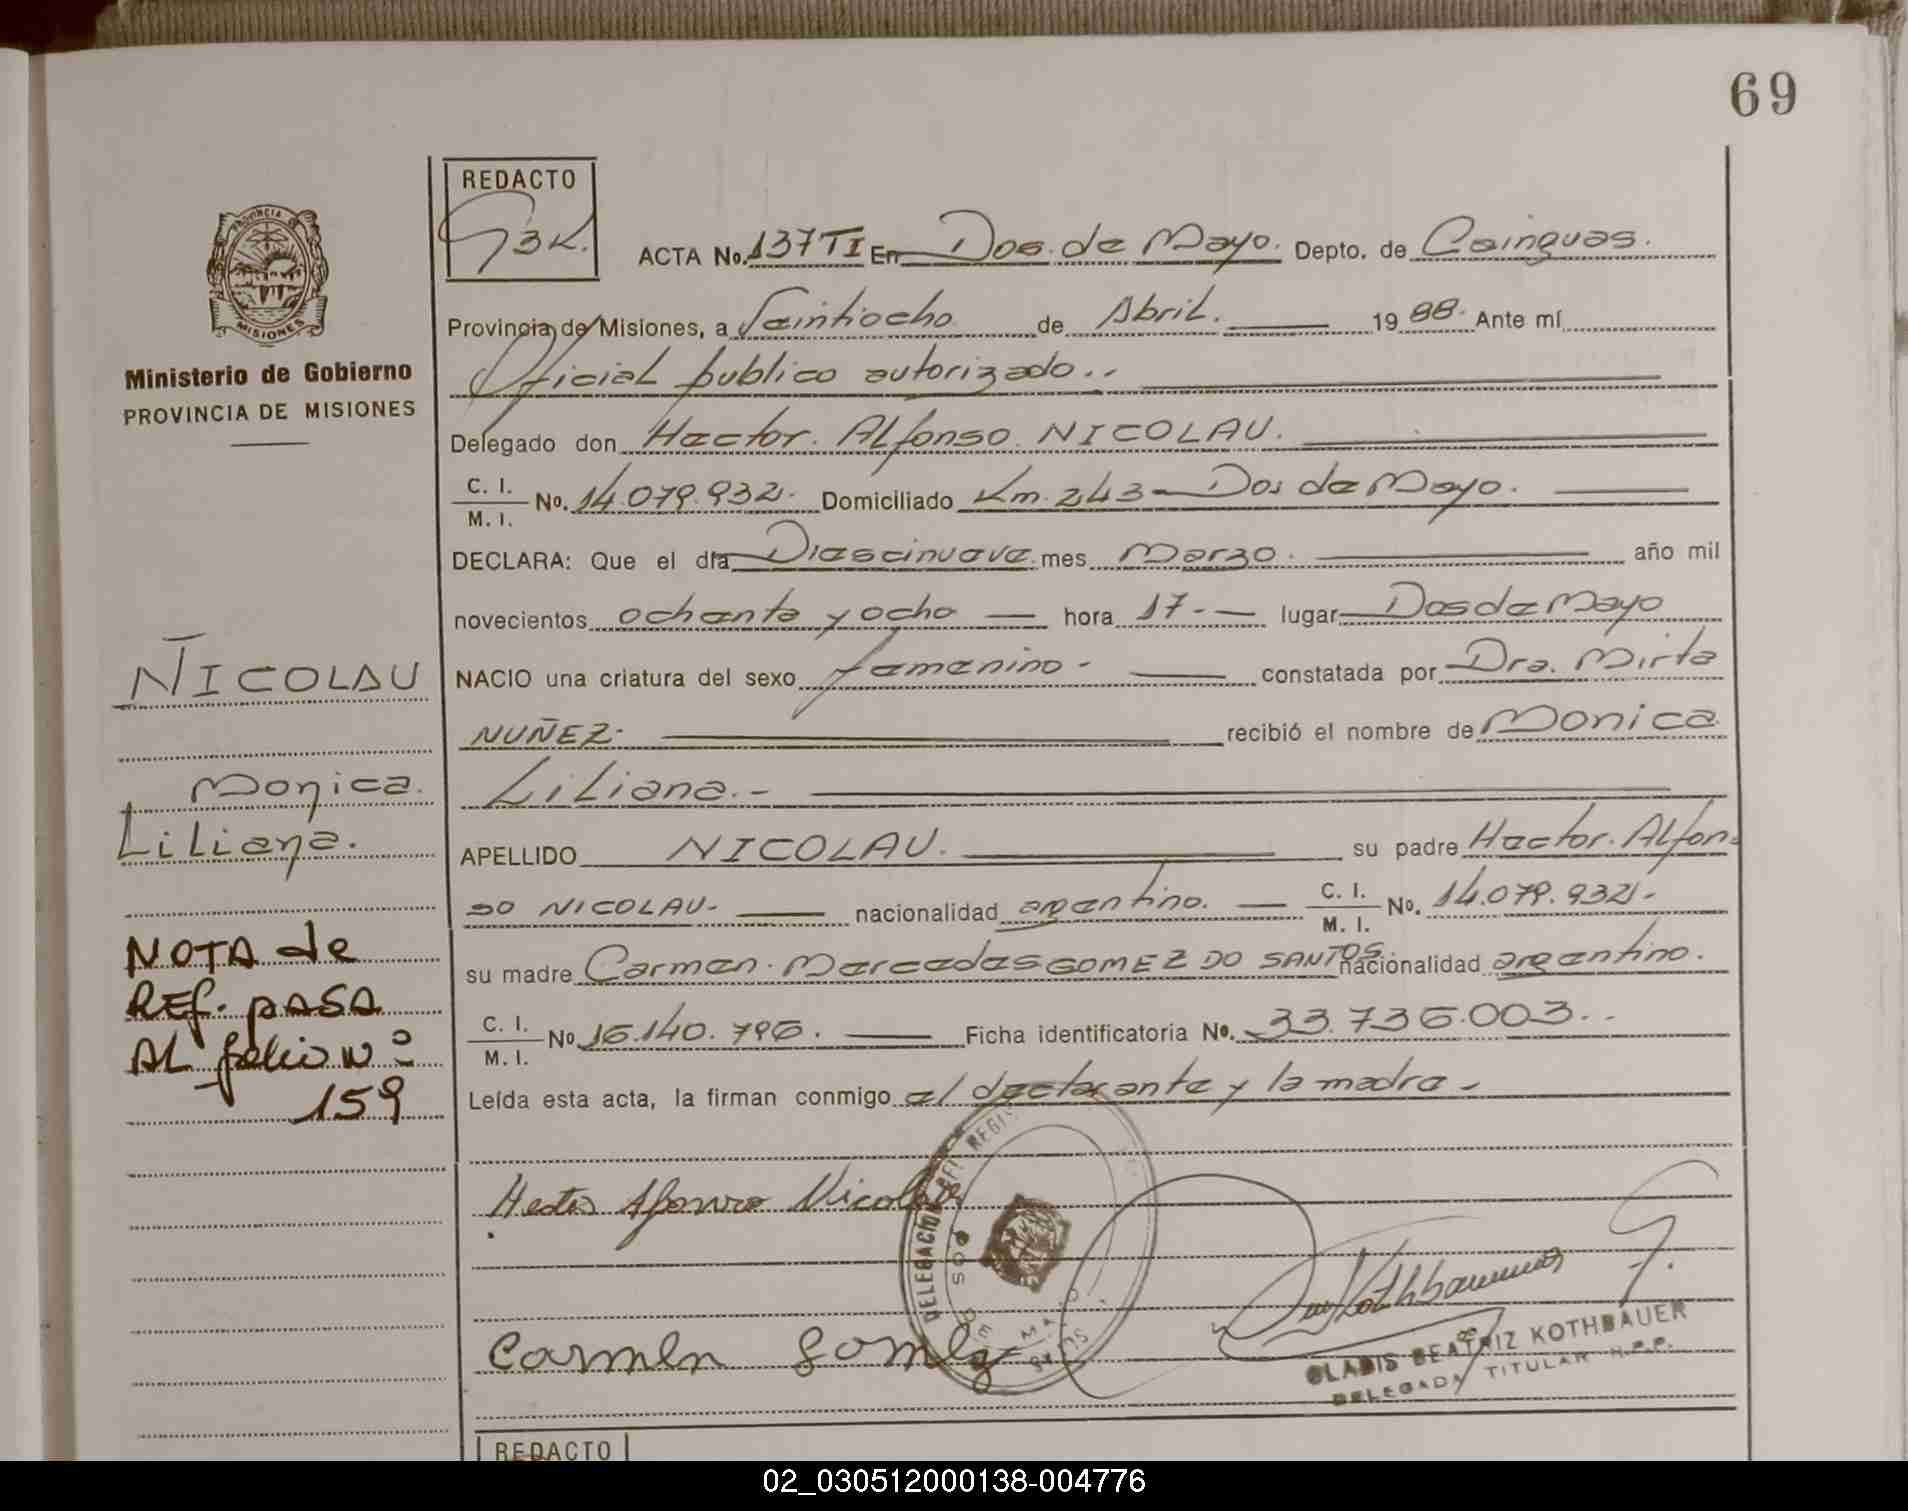 69
REDACTO
GBK.
PROVINCIA DE
MISIONES
Ministerio de Gobierno
PROVINCIA DE MISIONES
ACTA No. 137 TI En Dos de Mayo. Depto. de Cainguas.
Provincia de Misiones, a Veintiocho de Abril. 1988. Ante mí
Oficial publico autorizado..
Delegado don Hector. Alfonso NICOLAU.
C. I.
M. I. No. 14.079.932. Domiciliado Km. 243 - Dos de Mayo.
DECLARA: Que el día Diescinueve mes Marzo. año mil
novecientos ochenta y ocho hora 17.- lugar Dos de Mayo
NACIO una criatura del sexo femenino - constatada por Dra. Mirta
NUÑEZ. recibió el nombre de Monica
Liliana.-
APELLIDO NICOLAU. su padre Hector. Alfon-
so NICOLAU- nacionalidad argentino. C. I.
M. I. No. 14.079.932.-
su madre Carmen. Mercedes GOMEZ DO SANTOS. nacionalidad argentino.
C. I.
M. I. No 16.140.796. Ficha identificatoria No. 33.736.003..
Leída esta acta, la firman conmigo el declarante y la madre.-
NICOLAU
Monica.
Liliana.
NOTA de
REF. PASA
AL folio Nº
159
Hector Alfonso Nicolau
Carmen Gomez
DELEGACION
DOS DE MAYO
Kothbauer
GLADIS BEATRIZ KOTHBAUER
DELEGADA TITULAR R.P.P.
REDACTO
02_030512000138-004776